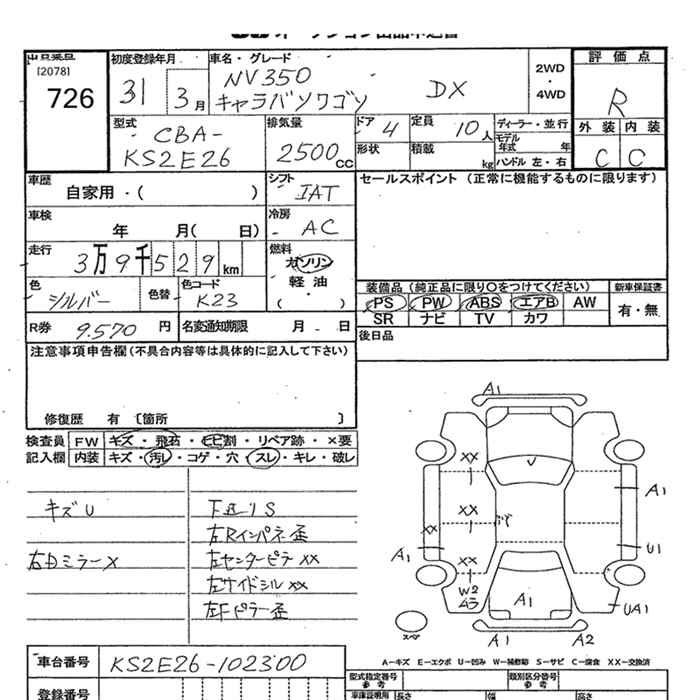 [2078]
726
初度登録年月
31 3月
車名・グレード
NV350
キャラバンワゴン DX
2WD
・
4WD
評価点
R
外装 内装
C C
型式
CBA-
KS2E26
排気量
2500cc
ドア 4
定員 10人
形状
積載 kg
ディーラー・並行
モデル年式 年
ハンドル 左・右
車歴
自家用・( )
シフト
IAT
セールスポイント (正常に機能するものに限ります)
車検
年 月( 日)
冷房
AC
走行
3万9千529km
燃料
ガソリン
軽油
( ・ )
色
シルバー
色替
色コード
K23
装備品 (純正品に限り○をつけてください)
新車保証書
PS PW ABS エアB AW
SR ナビ TV カワ
有・無
R券 9,570円
名変通知期限 月 日
後日品
注意事項申告欄 (不具合内容等は具体的に記入して下さい)
修復歴 有 〔箇所 〕
検査員
記入欄
FW キズ・飛石・ヒビ割・リペア跡・×要
内装 キズ・汚レ・コゲ・穴・スレ・キレ・破レ
キズU
右Dミラー×
下廻りS
左Rインパネ歪
左センターピラ××
左サイドシル××
左Fピラー歪
A1
××
××
××
××
A1
W2
ムラ
A1
U1
UA1
A1
A1 A2
スペア
車台番号 KS2E26-102300
A-キズ E-エクボ U-凹み W-補修跡 S-サビ C-腐食 XX-交換済
登録番号
型式指定番号
参考
類別区分番号
参考
車庫証明用 長さ 幅 高さ